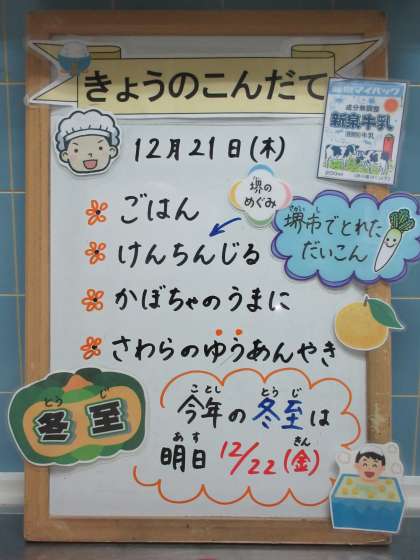 きょうのこんだて
マイパック
成分無調整
新泉牛乳
12月21日(木)
堺の
めぐみ
ごはん
けんちんじる
堺市でとれた
だいこん
かぼちゃのうまに
さわらのゆうあんやき
とうじ
冬至
ことし とうじ
今年の冬至は
あす きん
明日12/22(金)